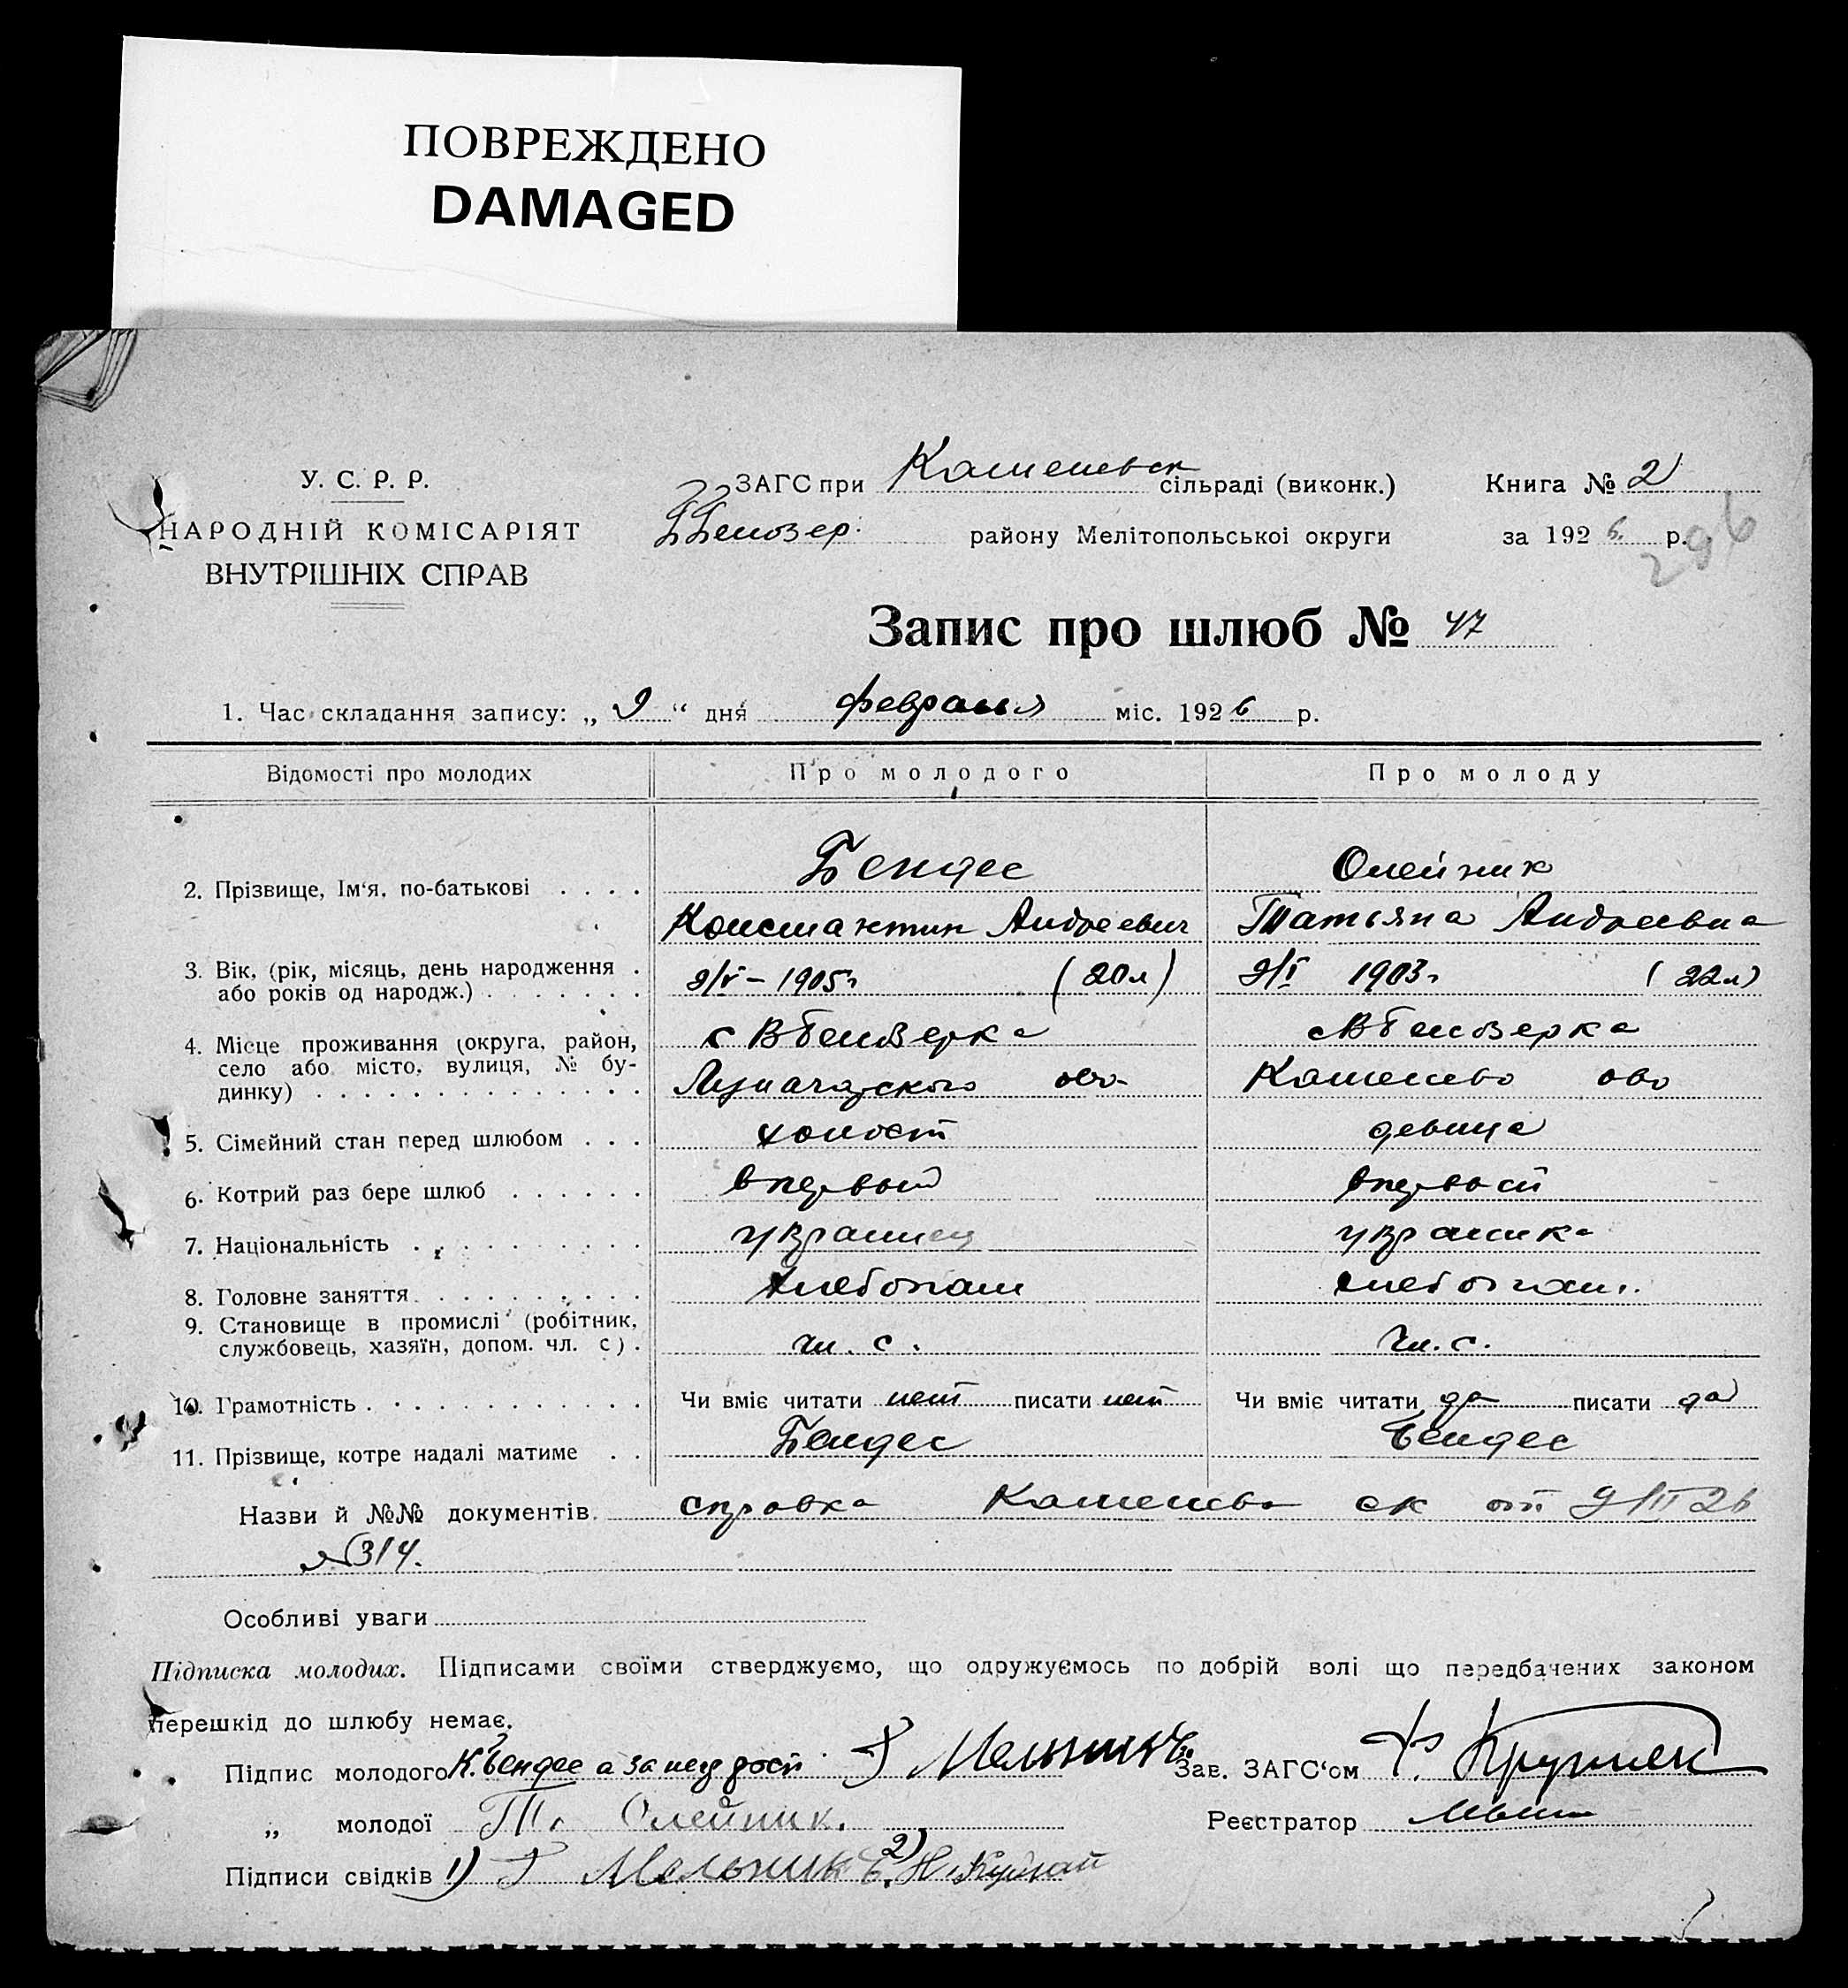 ПОВРЕЖДЕНО
DAMAGED
У. С. Р. Р.
НАРОДНІЙ КОМІСАРІЯТ
ВНУТРІШНІХ СПРАВ
ЗАГС при сільраді (виконк.)
Ббелозер. району Мелітопольськоі округи
Книга № 2
за 1926. р.
296
Запис про шлюб № 47
1. Час складання запису: „ 9 “ дня февраля міс. 1926 р.
Відомості про молодих Про молодого Про молоду
2. Прізвище, Ім‘я, по-батькові . . . . Бендес Олейник
Константин Андреевич Татьяна Андреевна
3. Вік, (рік, місяць, день народження . або років од народж.) . . . . . . . 9/V – 1905 г (20 л) 9/I 1903 г (22 л)
4. Місце проживання (округа, район, с В Белозерка с В Белозерка
село або місто, вулиця, № бу-
динку) . . . . . . . . . . . . . . . ово ово
5. Сімейний стан перед шлюбом . . . холост девица
6. Котрий раз бере шлюб . . . . . . первый первый
7. Національність . . . . . . . . . . украинец украинка
8. Головне заняття . . . . . . . . . . хлебопаш хлебопаш.
9. Становище в промислі (робітник,
службовець, хазяїн, допом. чл. с) . чл. с. чл. с.
10. Грамотність . . . . . . . . . . . . Чи вміє читати нет писати нет Чи вміє читати да писати да
11. Прізвище, котре надалі матиме . . Бендес Бендес
Назви й №№ документів. справка ск от 9/II 26
№ 314.
Особливі уваги
Підписка молодих. Підписами своїми стверджуємо, що одружуємось по добрій волі що передбачених законом
перешкід до шлюбу немає.
Підпис молодого К. Бендес а за негр росп Г Мельникъ Зав. ЗАГС‘ом
„ молодої Т. Олейник. Реєстратор
Підписи свідків 1) Г Мельникъ 2) Н.